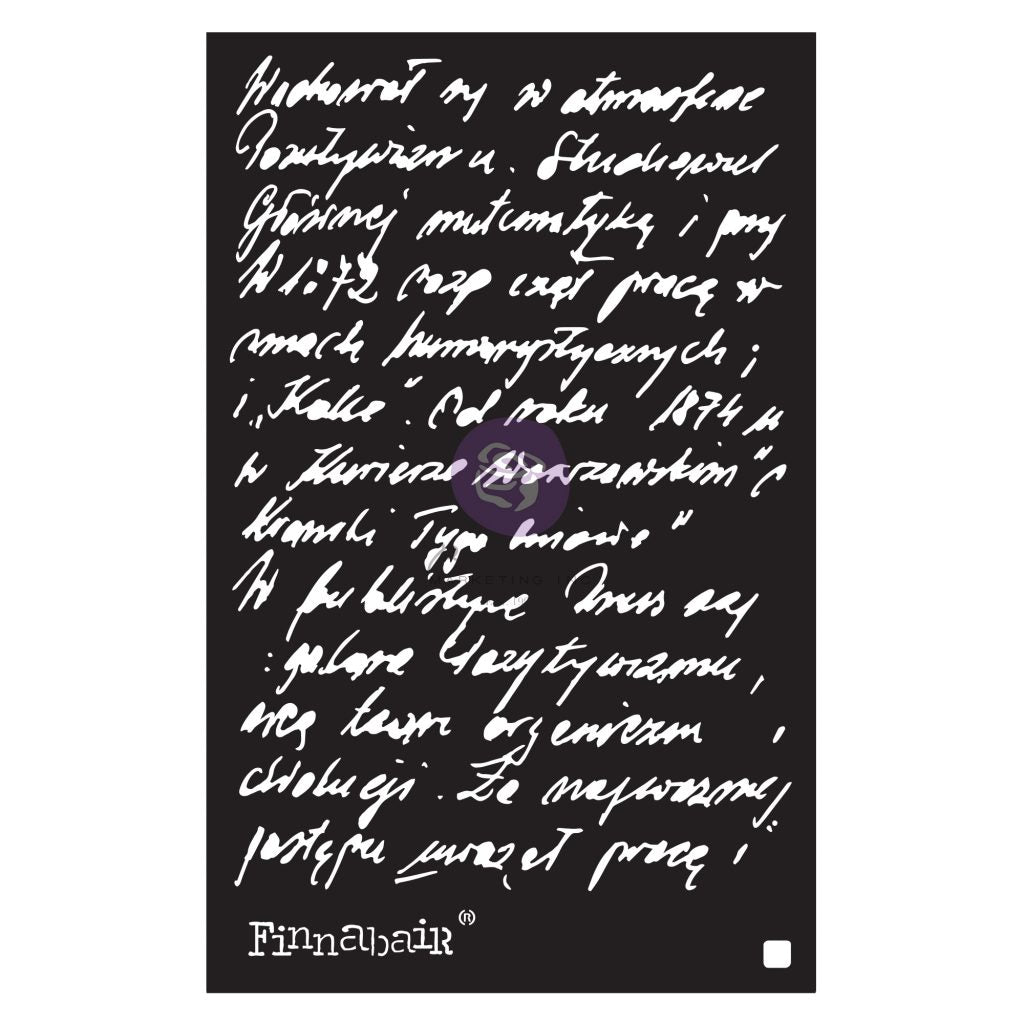 Wychował się w atmosferze
Pozytywizmu. Studiował
Głównej matematykę i przy
W 1872 rozpoczął pracę w
smach humorystycznych ;
i „Kolce". Od roku 1874 u
w Kurierze Warszawskim" i
Kroniki Tygodniowe"
W publicystyce Prus
pozytywizmu,
organizm i
ewolucji. Za najważniej
postępu uważał pracę i
Finnabair (R)
MARKETING INC